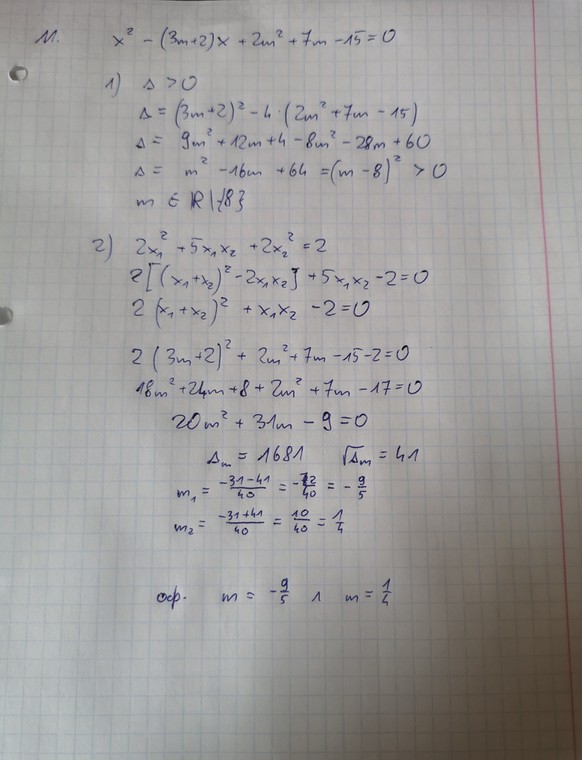 11. x² - (3m+2)x + 2m² + 7m - 15 = 0
1) Δ > 0
Δ = (3m+2)² - 4·(2m² + 7m - 15)
Δ = 9m² + 12m + 4 - 8m² - 28m + 60
Δ = m² - 16m + 64 = (m - 8)² > 0
m ∈ ℝ \ {8}
2) 2x₁² + 5x₁x₂ + 2x₂² = 2
2[(x₁+x₂)² - 2x₁x₂] + 5x₁x₂ - 2 = 0
2(x₁+x₂)² + x₁x₂ - 2 = 0
2(3m+2)² + 2m² + 7m - 15 - 2 = 0
18m² + 24m + 8 + 2m² + 7m - 17 = 0
20m² + 31m - 9 = 0
Δₘ = 1681 √Δₘ = 41
m₁ = (-31-41)/40 = -72/40 = -9/5
m₂ = (-31+41)/40 = 10/40 = 1/4
odp. m = -9/5 ∧ m = 1/4